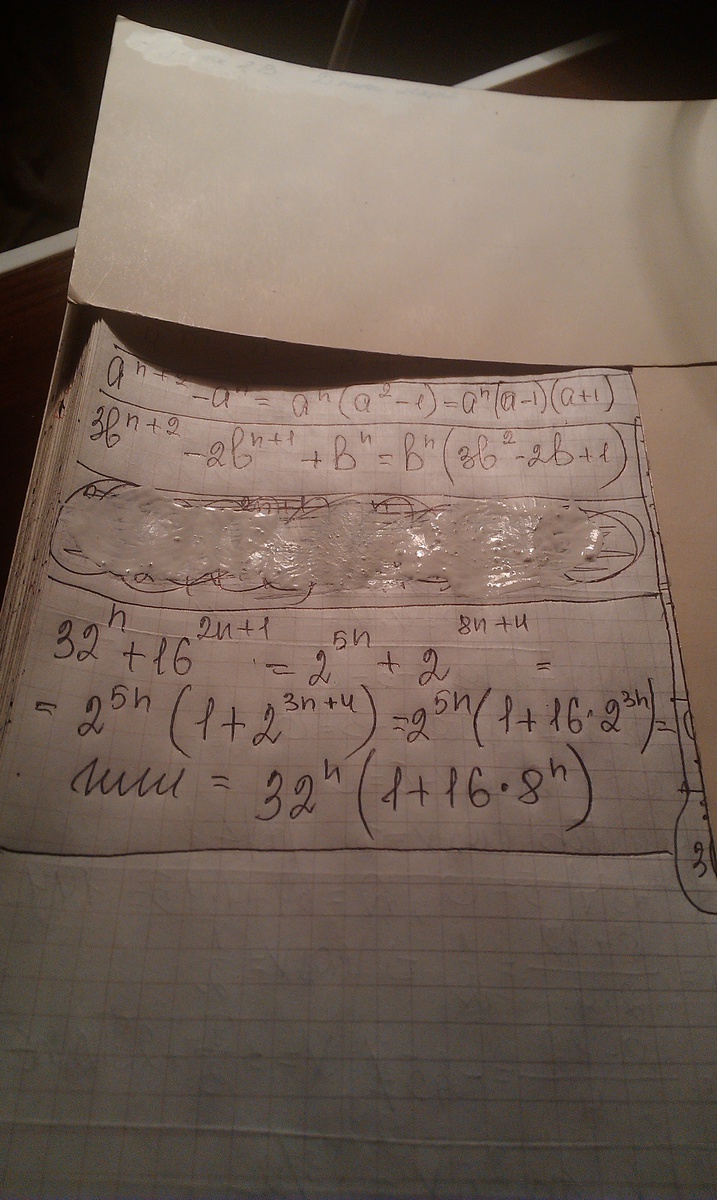 aⁿ⁺² - aⁿ = aⁿ(a² - 1) = aⁿ(a-1)(a+1)
3bⁿ⁺² - 2bⁿ⁺¹ + bⁿ = bⁿ(3b² - 2b + 1)
32ⁿ + 16²ⁿ⁺¹ = 2⁵ⁿ + 2⁸ⁿ⁺⁴ =
= 2⁵ⁿ(1 + 2³ⁿ⁺⁴) = 2⁵ⁿ(1 + 16·2³ⁿ) =
или = 32ⁿ(1 + 16·8ⁿ)
3